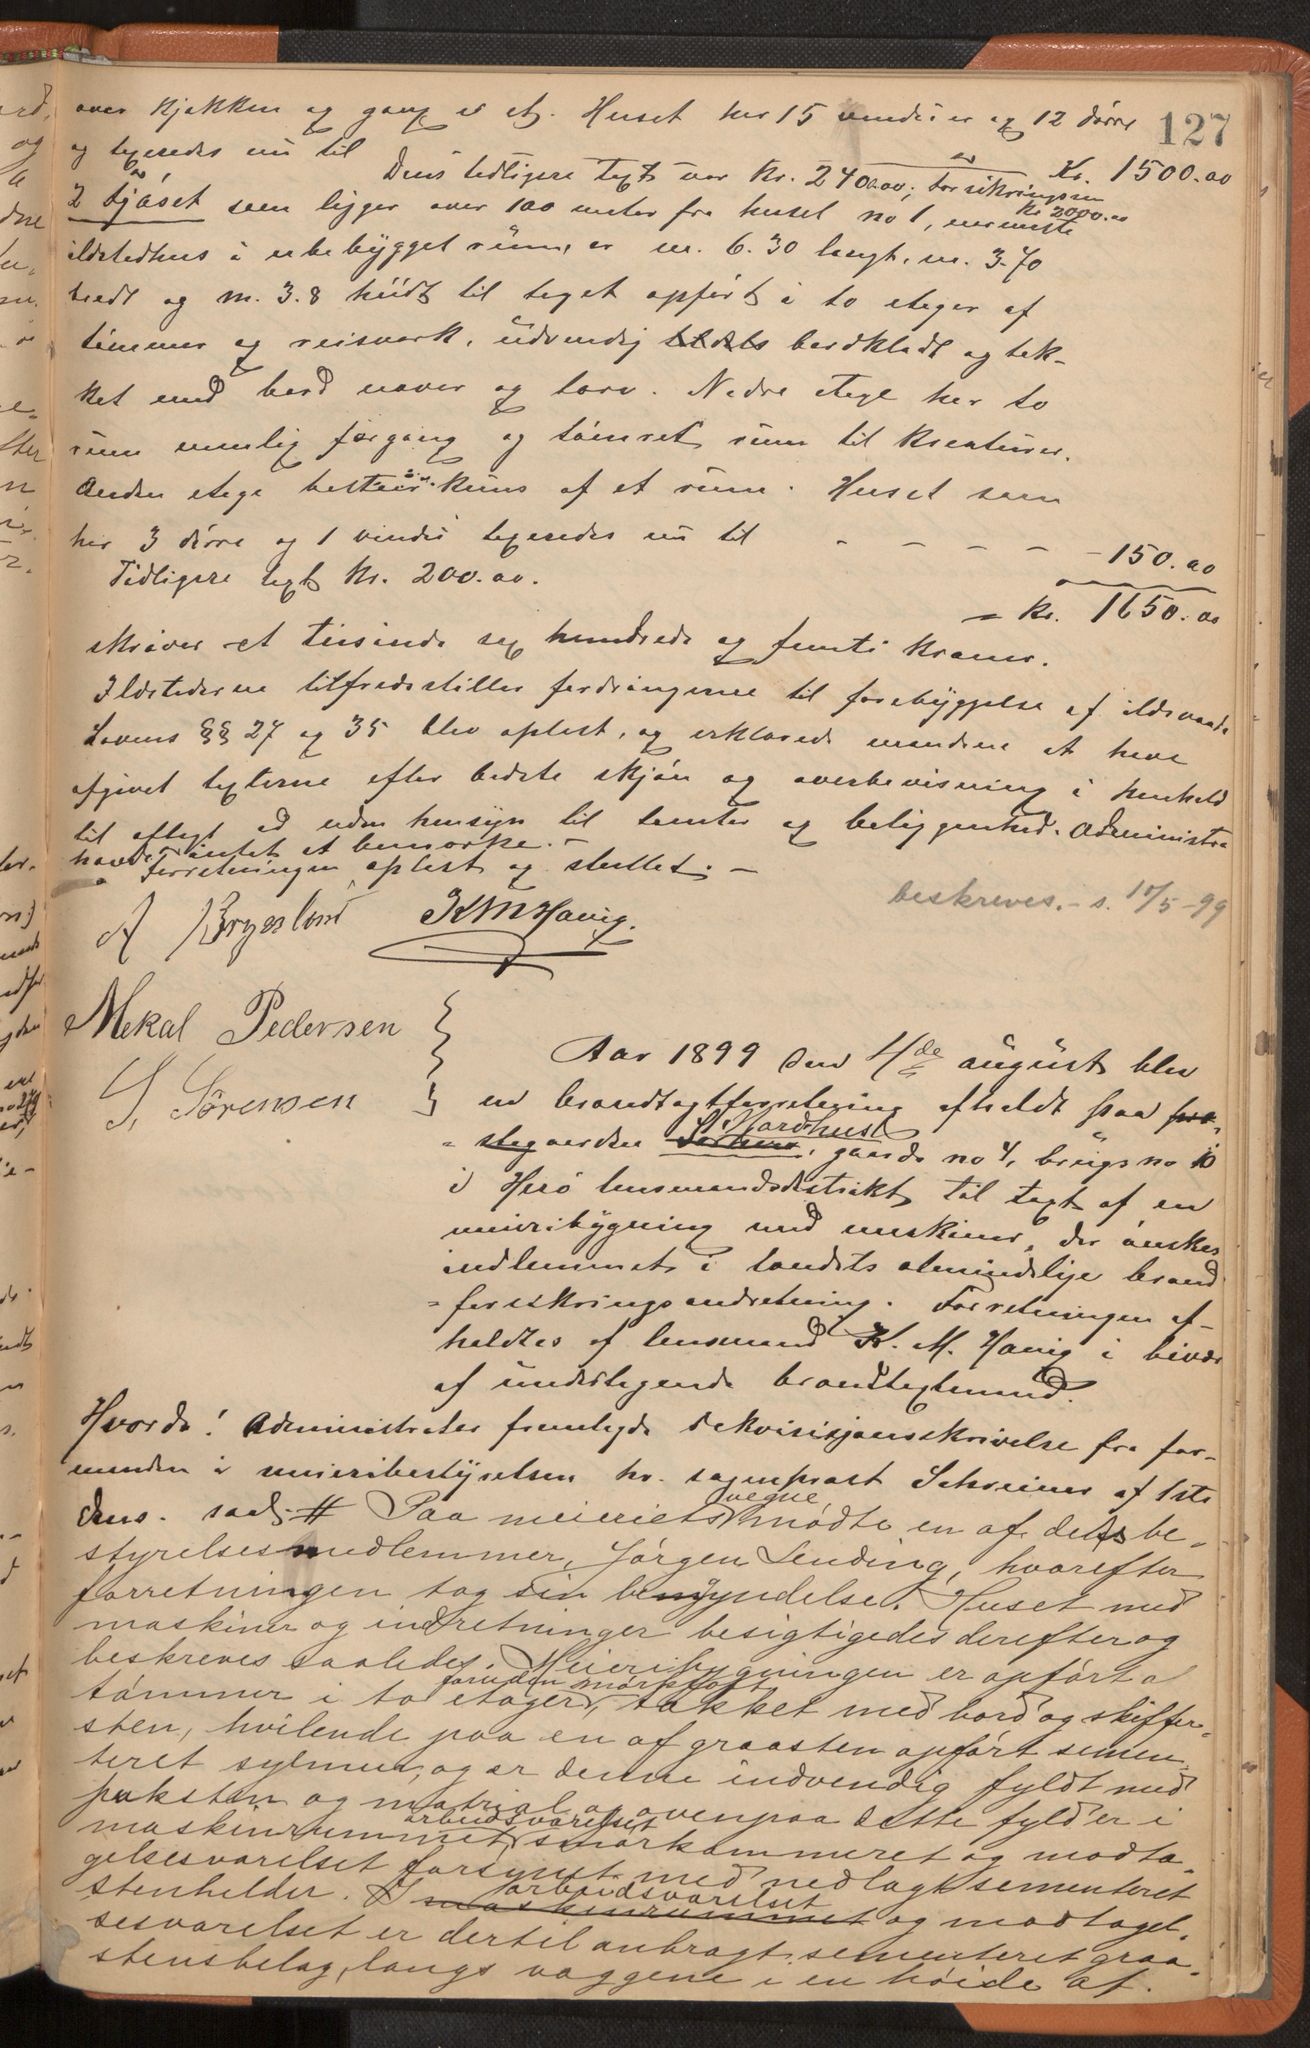 127
over kjøkken og gang i 2 etg. Huset har 15 vinduer og 12 dørre
og taxeredes nu til Kr. 1500.00
Dens tidligere taxt var Kr. 2400.00, forsikringssum Kr 2000.00
2 Fjøset som ligger over 100 meter fra huset no 1, nærmeste
ildstedhus i ubebygget rum, er m. 6.30 langt, m. 3.70
bredt og m. 3.8 høidt til taget opført i to etager af
tømmer og reisverk, udvendig bordklædt og tæk-
ket med bord næver og torv. Nedre etage har to
rum nemlig forgang og tømret rum til kreaturer.
Anden etage bestaar kuns af et rum. Huset som
har 3 dørre og 1 vindu taxeredes nu til - - - - - 150.00
Tidligere taxt Kr. 200.00.
= Kr. 1650.00
skriver et tusinde sex hundrede og femti kroner.
Ildstederne tilfredsstiller fordringerne til forebyggelse af ildsvaade
Lovens §§ 27 og 35 blev oplæst, og erklærede mændene at have
afgivet taxterne efter bedste skjøn og overbevisning i henhold
til aflagt ed uden hensyn til tomter og beliggenhed. Administra
havde intet at bemærke. -
Forretningen oplæst og sluttet. -
beskreves. - s. 10/5 - 99
A Brygslont K M Havig.
Mekal Pedersen
S. Sørensen
Aar 1899 den 4de august blev
en brandtaxtforretning afholdt paa præ-
stegaarden Nordhuset, gaards no 4, brugs no 10
i Herø lensmandsdistrikt til taxt af en
meieribygning med maskiner, der ønskes
indlemmet i landets almindelige brand
forsikringsindretning. Forretningen af-
holdtes af lensmand K. M. Havig i bivær
af undertegende brandtaxtmænd.
Hvorda! Administrator fremlagde rekvisisjonsskrivelse fra for-
manden i meieribestyrelsen hr. sogneprest Schreiner af 1ste
dens. saal. # Paa meieriets vegne mødte en af dets be-
styrelsesmedlemmer, Jørgen Lending, hvorefter
forretningen tog sin begyndelse. Huset med
maskiner og indretninger besigtigedes derefter og
beskreves saaledes. Meieribygningen er opført a
tømmer i to etager, foruden mørkloft, tækket med bord og skiffer-
sten, hvilende paa en af graasten opført semen-
teret sylmur, og er denne indvendig fyldt med
puksten og matrial og ovenpaa dette fyld er i
maskinrummet, arbeidsværelset smørkammeret og modta-
gelsesværelset forsynet med nedlagt sementeret
stenheller. I maskinrummet arbeidsværelset og modtagel-
sesværelset er dertil anbragt sementeret graa-
stensbelag, langs væggene i en høide af.